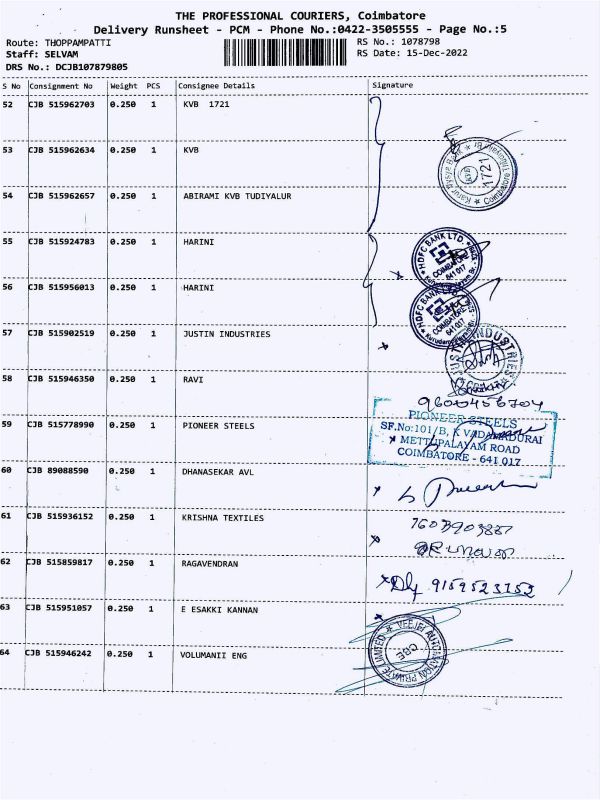 THE PROFESSIONAL COURIERS, Coimbatore
Delivery Runsheet - PCM - Phone No.:0422-3505555 - Page No.:5
Route: THOPPAMPATTI
RS No.: 1078798
Staff: SELVAM
RS Date: 15-Dec-2022
DRS No.: DCJB107879805
S No Consignment No Weight PCS Consignee Details Signature
52 CJB 515962703 0.250 1 KVB 1721
53 CJB 515962634 0.250 1 KVB
1721
Coimbatore
54 CJB 515962657 0.250 1 ABIRAMI KVB TUDIYALUR
55 CJB 515924783 0.250 1 HARINI
HDFC BANK LTD.
COIMBATORE
641 017
56 CJB 515956013 0.250 1 HARINI
HDFC BANK LTD.
COIMBATORE
641 017
57 CJB 515902519 0.250 1 JUSTIN INDUSTRIES
JUSTIN INDUSTRIES
58 CJB 515946350 0.250 1 RAVI
9600456704
59 CJB 515778990 0.250 1 PIONEER STEELS
PIONEER STEELS
SF.No:101/B, K VADAMADURAI
METTUPALAYAM ROAD
COIMBATORE - 641 017
60 CJB 89088590 0.250 1 DHANASEKAR AVL
61 CJB 515936152 0.250 1 KRISHNA TEXTILES
62 CJB 515859817 0.250 1 RAGAVENDRAN
9159523152
63 CJB 515951057 0.250 1 E ESAKKI KANNAN
64 CJB 515946242 0.250 1 VOLUMANII ENG
VEEJEI AUTOMATION PRIVATE LIMITED
CBE